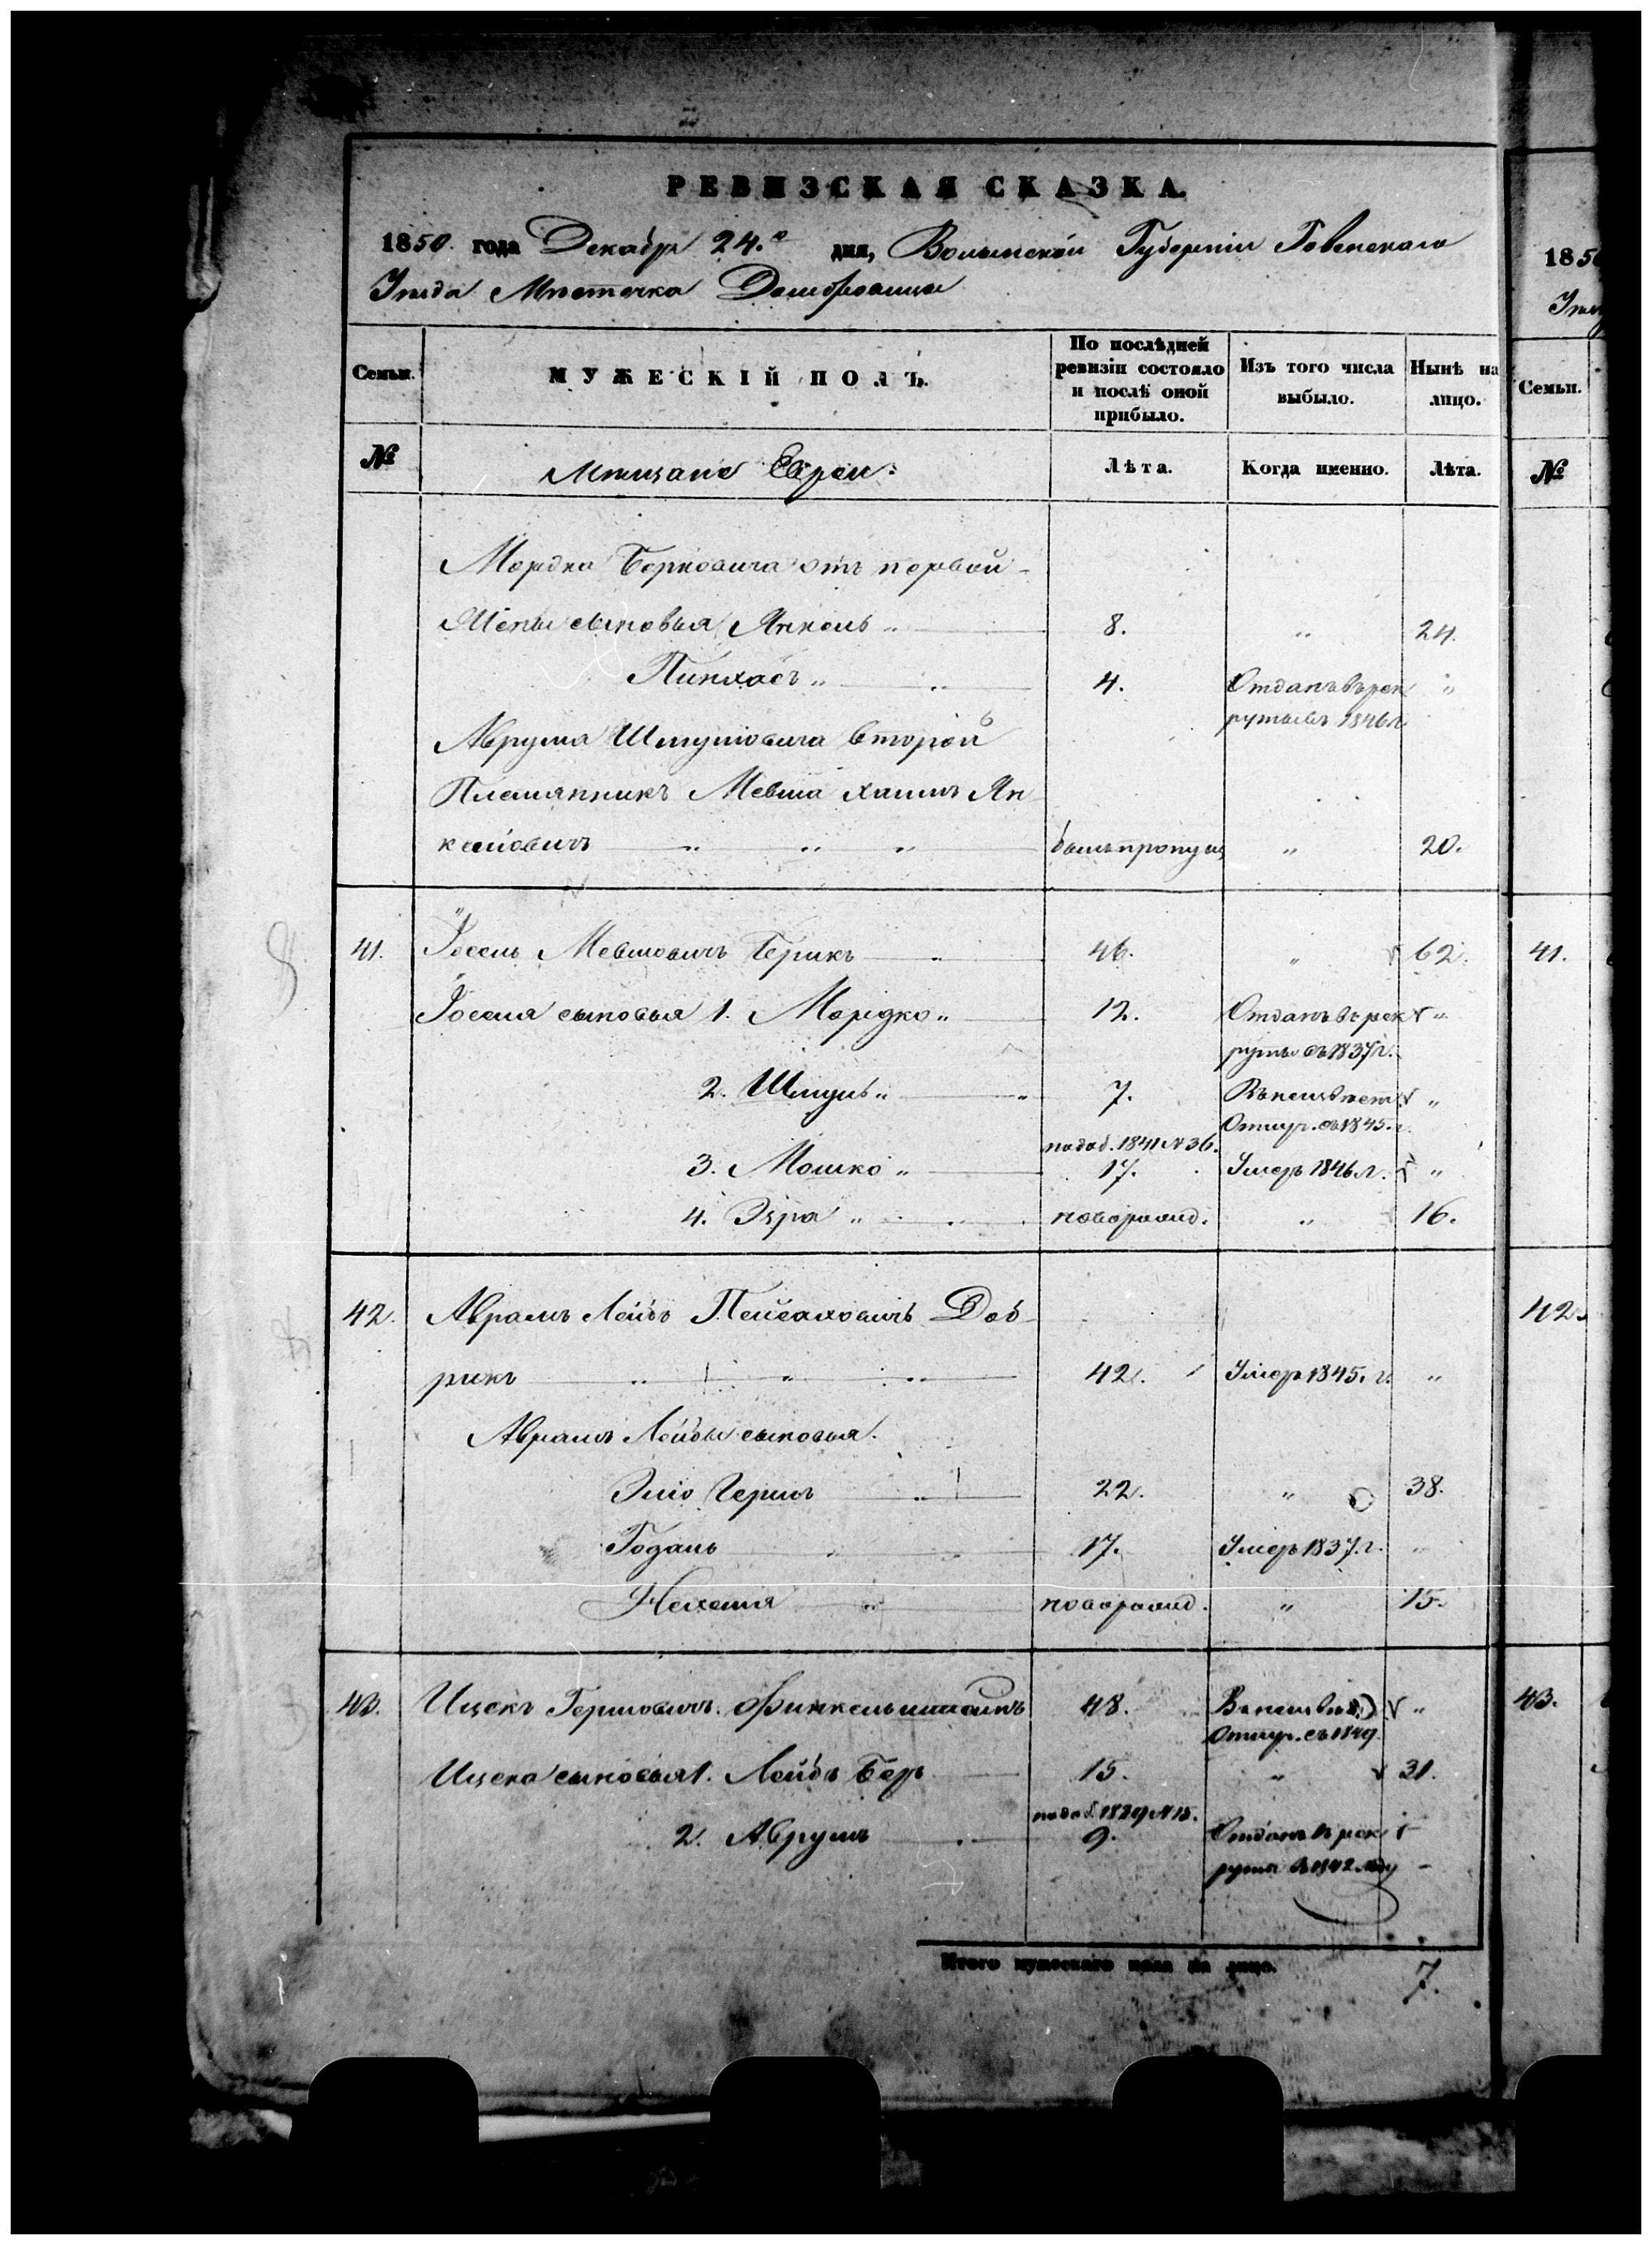 РЕВИЗСКАЯ СКАЗКА.
1850 года Декабр 24.го дня, Волынской Губерніи Ровенскаго
Уезда Мѣстечка Домбровицы
Семьи.
МУЖЕСКІЙ ПОЛЪ.
По послѣдней ревизіи состояло и послѣ оной прибыло.
Изъ того числа выбыло.
Нынѣ на лицо.
№
Мѣщане Евреи.
Лѣта.
Когда именно.
Лѣта.
Мордка Берковича отъ первой
Жены сыновья Янкель 8. " 24.
Пинхасъ 4. Отданъ въ рек "
руты въ 1846 г.
Аврума Шмулiовича второй
Племянникъ Мевша Хаимъ Ян
келiовичъ былъ пропущ " 20.
41. Іосель Мевшовичъ Берикъ 46. " 62.
Іоселя сыновья 1. Мордко 12. Отданъ въ рек "
руты въ 1837 г.
2. Шмуль 7. Въ неизвѣст "
Отлуч. съ 1845. г.
по доб. 1841 № 36.
3. Мошко 17. Умеръ 1846 г. "
4. Эзра новорожд. " 16.
42. Аврамъ Лейбъ Пейсаховичъ Доб
рикъ 42. Умеръ 1845. г. "
Аврамъ Лейбы сыновья.
Эліо Гершъ 22. " 38.
Годаль 17. Умеръ 1837. г. "
Нехемія новорожд. " 15.
43. Ицекъ Гершовичъ Финкельштейнъ 48. "
Отлуч. съ 1849
Ицека сыновья 1. Лейбъ Беръ 15. " 31.
по доб. 1839 № 15.
2. Аврумъ 9. Отданъ въ рек
руты въ 1842 году
Итого мужескаго пола на лицо. 7.
1850
Семьи.
№
41.
42.
43.